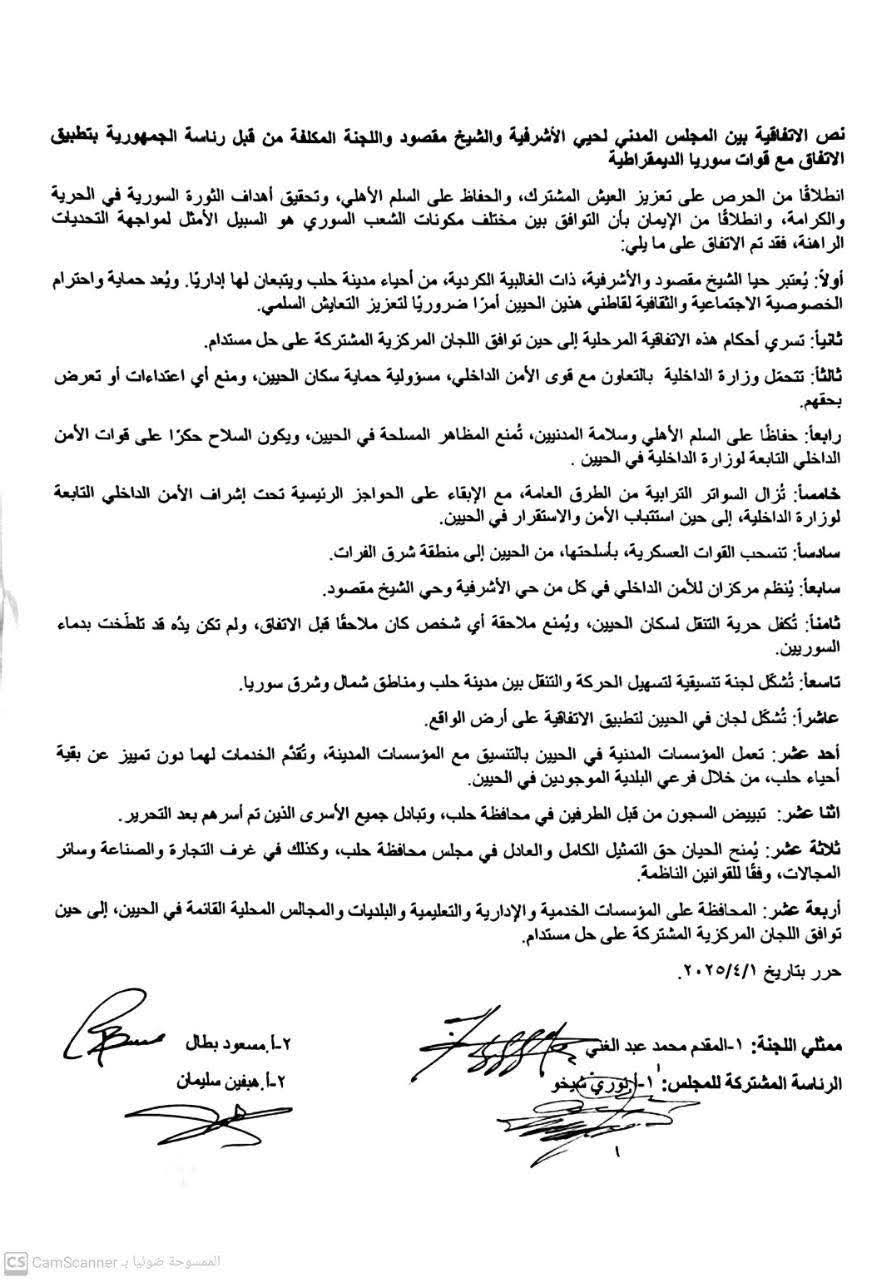 نص الاتفاقية بين المجلس المدني لحيي الأشرفية والشيخ مقصود واللجنة المكلفة من قبل رئاسة الجمهورية بتطبيق
الاتفاق مع قوات سوريا الديمقراطية
انطلاقًا من الحرص على تعزيز العيش المشترك، والحفاظ على السلم الأهلي، وتحقيق أهداف الثورة السورية في الحرية
والكرامة، وانطلاقًا من الإيمان بأن التوافق بين مختلف مكونات الشعب السوري هو السبيل الأمثل لمواجهة التحديات
الراهنة، فقد تم الاتفاق على ما يلي:
أولاً: يُعتبر حيا الشيخ مقصود والأشرفية، ذات الغالبية الكردية، من أحياء مدينة حلب ويتبعان لها إداريًا. ويُعد حماية واحترام
الخصوصية الاجتماعية والثقافية لقاطني هذين الحيين أمرًا ضروريًا لتعزيز التعايش السلمي.
ثانياً: تسري أحكام هذه الاتفاقية المرحلية إلى حين توافق اللجان المركزية المشتركة على حل مستدام.
ثالثاً: تتحمّل وزارة الداخلية بالتعاون مع قوى الأمن الداخلي، مسؤولية حماية سكان الحيين، ومنع أي اعتداءات أو تعرض
بحقهم.
رابعاً: حفاظًا على السلم الأهلي وسلامة المدنيين، تُمنع المظاهر المسلحة في الحيين، ويكون السلاح حكرًا على قوات الأمن
الداخلي التابعة لوزارة الداخلية في الحيين .
خامساً: تُزال السواتر الترابية من الطرق العامة، مع الإبقاء على الحواجز الرئيسية تحت إشراف الأمن الداخلي التابعة
لوزارة الداخلية، إلى حين استتباب الأمن والاستقرار في الحيين.
سادساً: تنسحب القوات العسكرية، بأسلحتها، من الحيين إلى منطقة شرق الفرات.
سابعاً: يُنظم مركزان للأمن الداخلي في كل من حي الأشرفية وحي الشيخ مقصود.
ثامناً: تُكفل حرية التنقل لسكان الحيين، ويُمنع ملاحقة أي شخص كان ملاحقًا قبل الاتفاق، ولم تكن يدُه قد تلطّخت بدماء
السوريين.
تاسعاً: تُشكّل لجنة تنسيقية لتسهيل الحركة والتنقل بين مدينة حلب ومناطق شمال وشرق سوريا.
عاشراً: تُشكّل لجان في الحيين لتطبيق الاتفاقية على أرض الواقع.
أحد عشر: تعمل المؤسسات المدنية في الحيين بالتنسيق مع المؤسسات المدينة، وتُقدَّم الخدمات لهما دون تمييز عن بقية
أحياء حلب، من خلال فرعي البلدية الموجودين في الحيين.
اثنا عشر: تبييض السجون من قبل الطرفين في محافظة حلب، وتبادل جميع الأسرى الذين تم أسرهم بعد التحرير.
ثلاثة عشر: يُمنح الحيان حق التمثيل الكامل والعادل في مجلس محافظة حلب، وكذلك في غرف التجارة والصناعة وسائر
المجالات، وفقًا للقوانين الناظمة.
أربعة عشر: المحافظة على المؤسسات الخدمية والإدارية والتعليمية والبلديات والمجالس المحلية القائمة في الحيين، إلى حين
توافق اللجان المركزية المشتركة على حل مستدام.
حرر بتاريخ ٢٠٢٥/٤/١.
ممثلي اللجنة: ١-المقدم محمد عبد الغني ٢-أ.مسعود بطال
الرئاسة المشتركة للمجلس: ١-أ.نوري شيخو ٢-أ.هيفين سليمان
١
CS CamScanner الممسوحة ضوئيا بـ